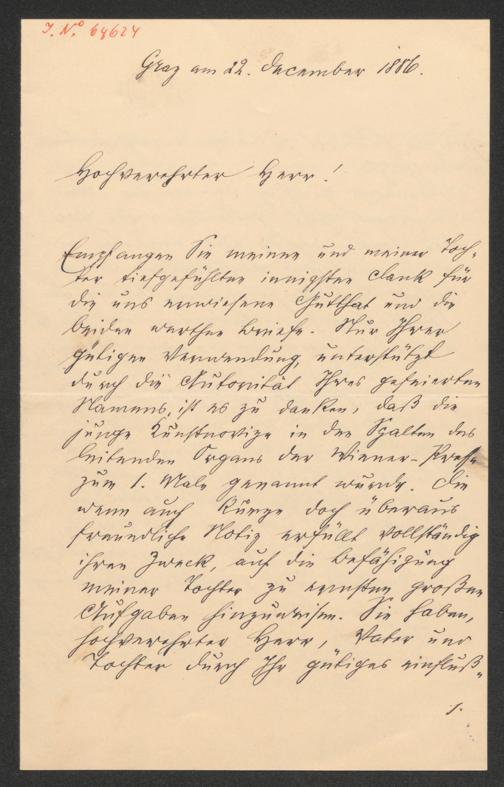 I. Nº 64624
Graz am 22. December 1886.
Hochverehrter Herr!
Empfangen Sie meinen und meiner Toch-
ter tiefgefühlten innigsten Dank für
die uns erwiesene Gutthat und die
beiden werthen Briefe. Nur Ihrer
gütigen Verwendung, unterstützt
durch die Autorität Ihres gefeierten
Namens, ist es zu danken, daß die
junge Kunstnovize in den Spalten des
leitenden Organs der Wiener-Presse
zum 1. Male genannt wurde. Die
wenn auch kurze doch überaus
freundliche Notiz erfüllt vollständig
ihren Zweck, auf die Befähigung
meiner Tochter zu ernsten großen
Aufgaben hinzuweisen. Sie haben,
hochverehrter Herr, Vater und
Tochter durch Ihr gütiges einfluß-